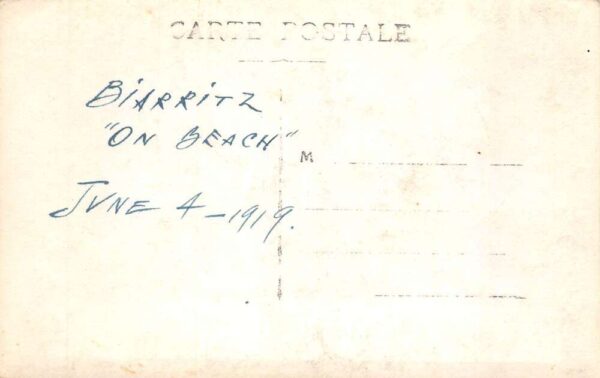 CARTE POSTALE
BiARRiTZ
"ON BEACH"
M
JUNE 4-1919.